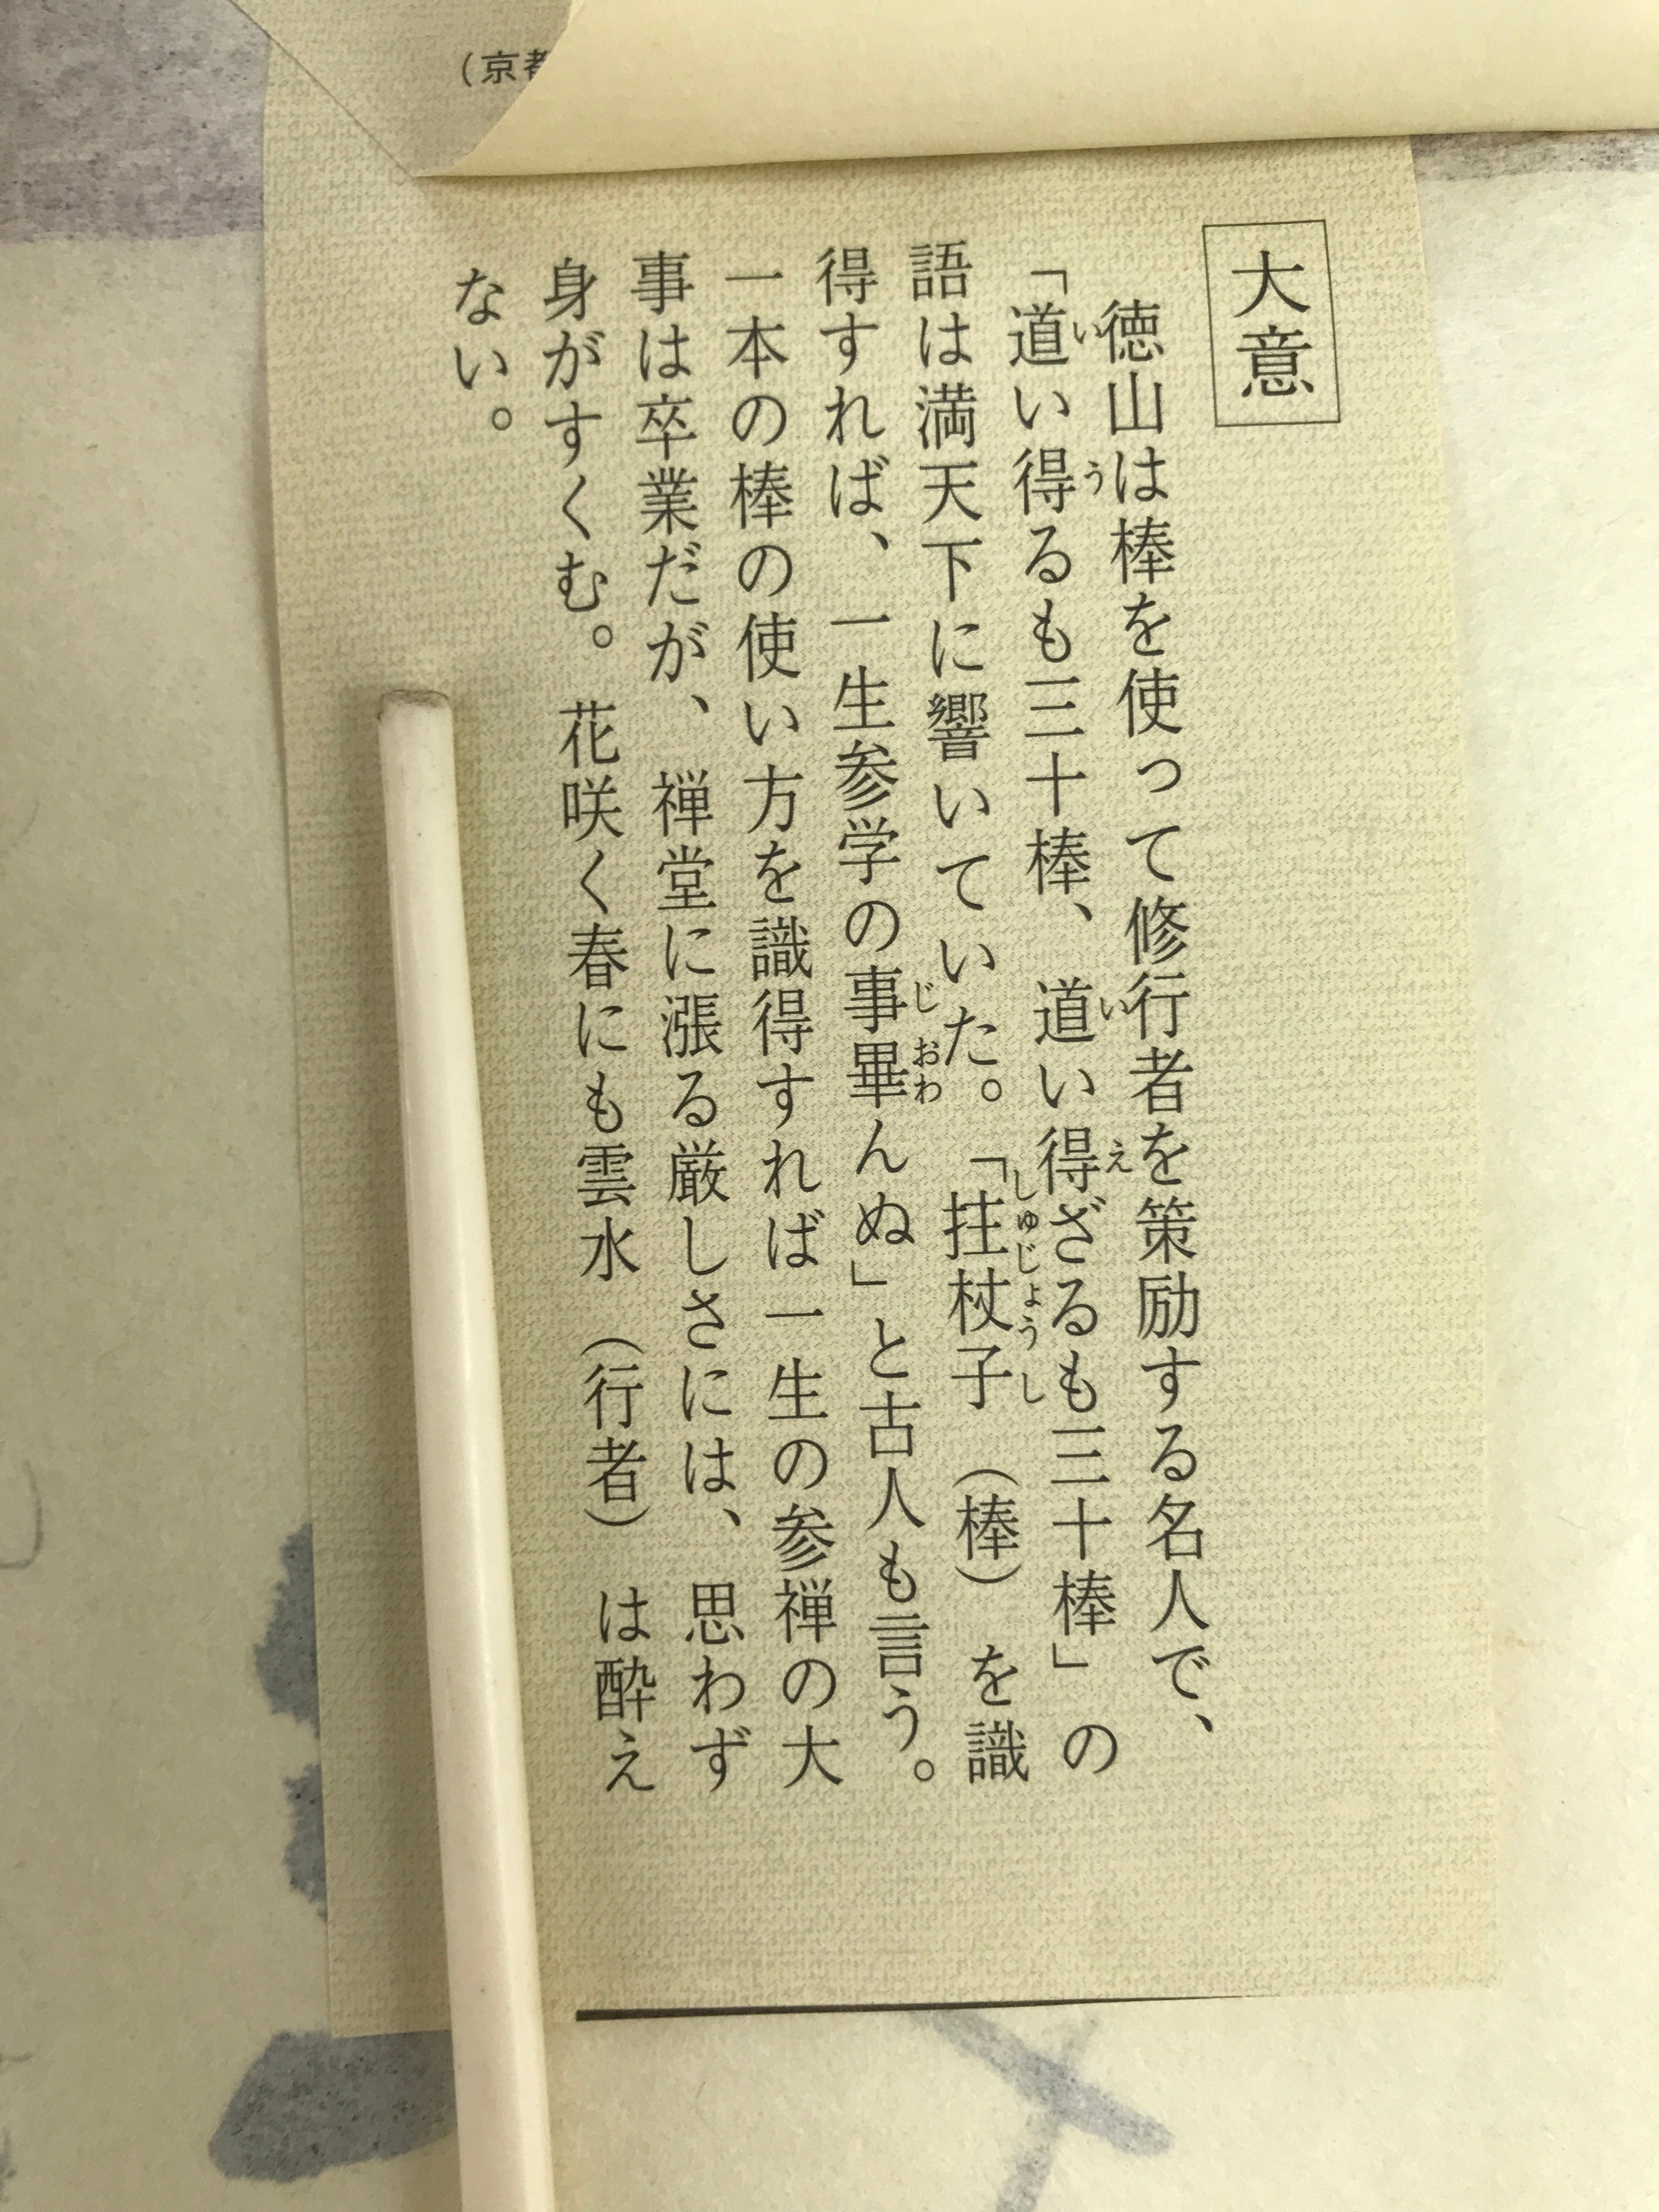 大意
徳山は棒を使って修行者を策励する名人で、
「道い得るも三十棒、道い得ざるも三十棒」の
語は満天下に響いていた。「拄杖子（棒）を識
得すれば、一生参学の事畢んぬ」と古人も言う。
一本の棒の使い方を識得すれば一生の参禅の大
事は卒業だが、禅堂に漲る厳しさには、思わず
身がすくむ。花咲く春にも雲水（行者）は酔え
ない。
（京都